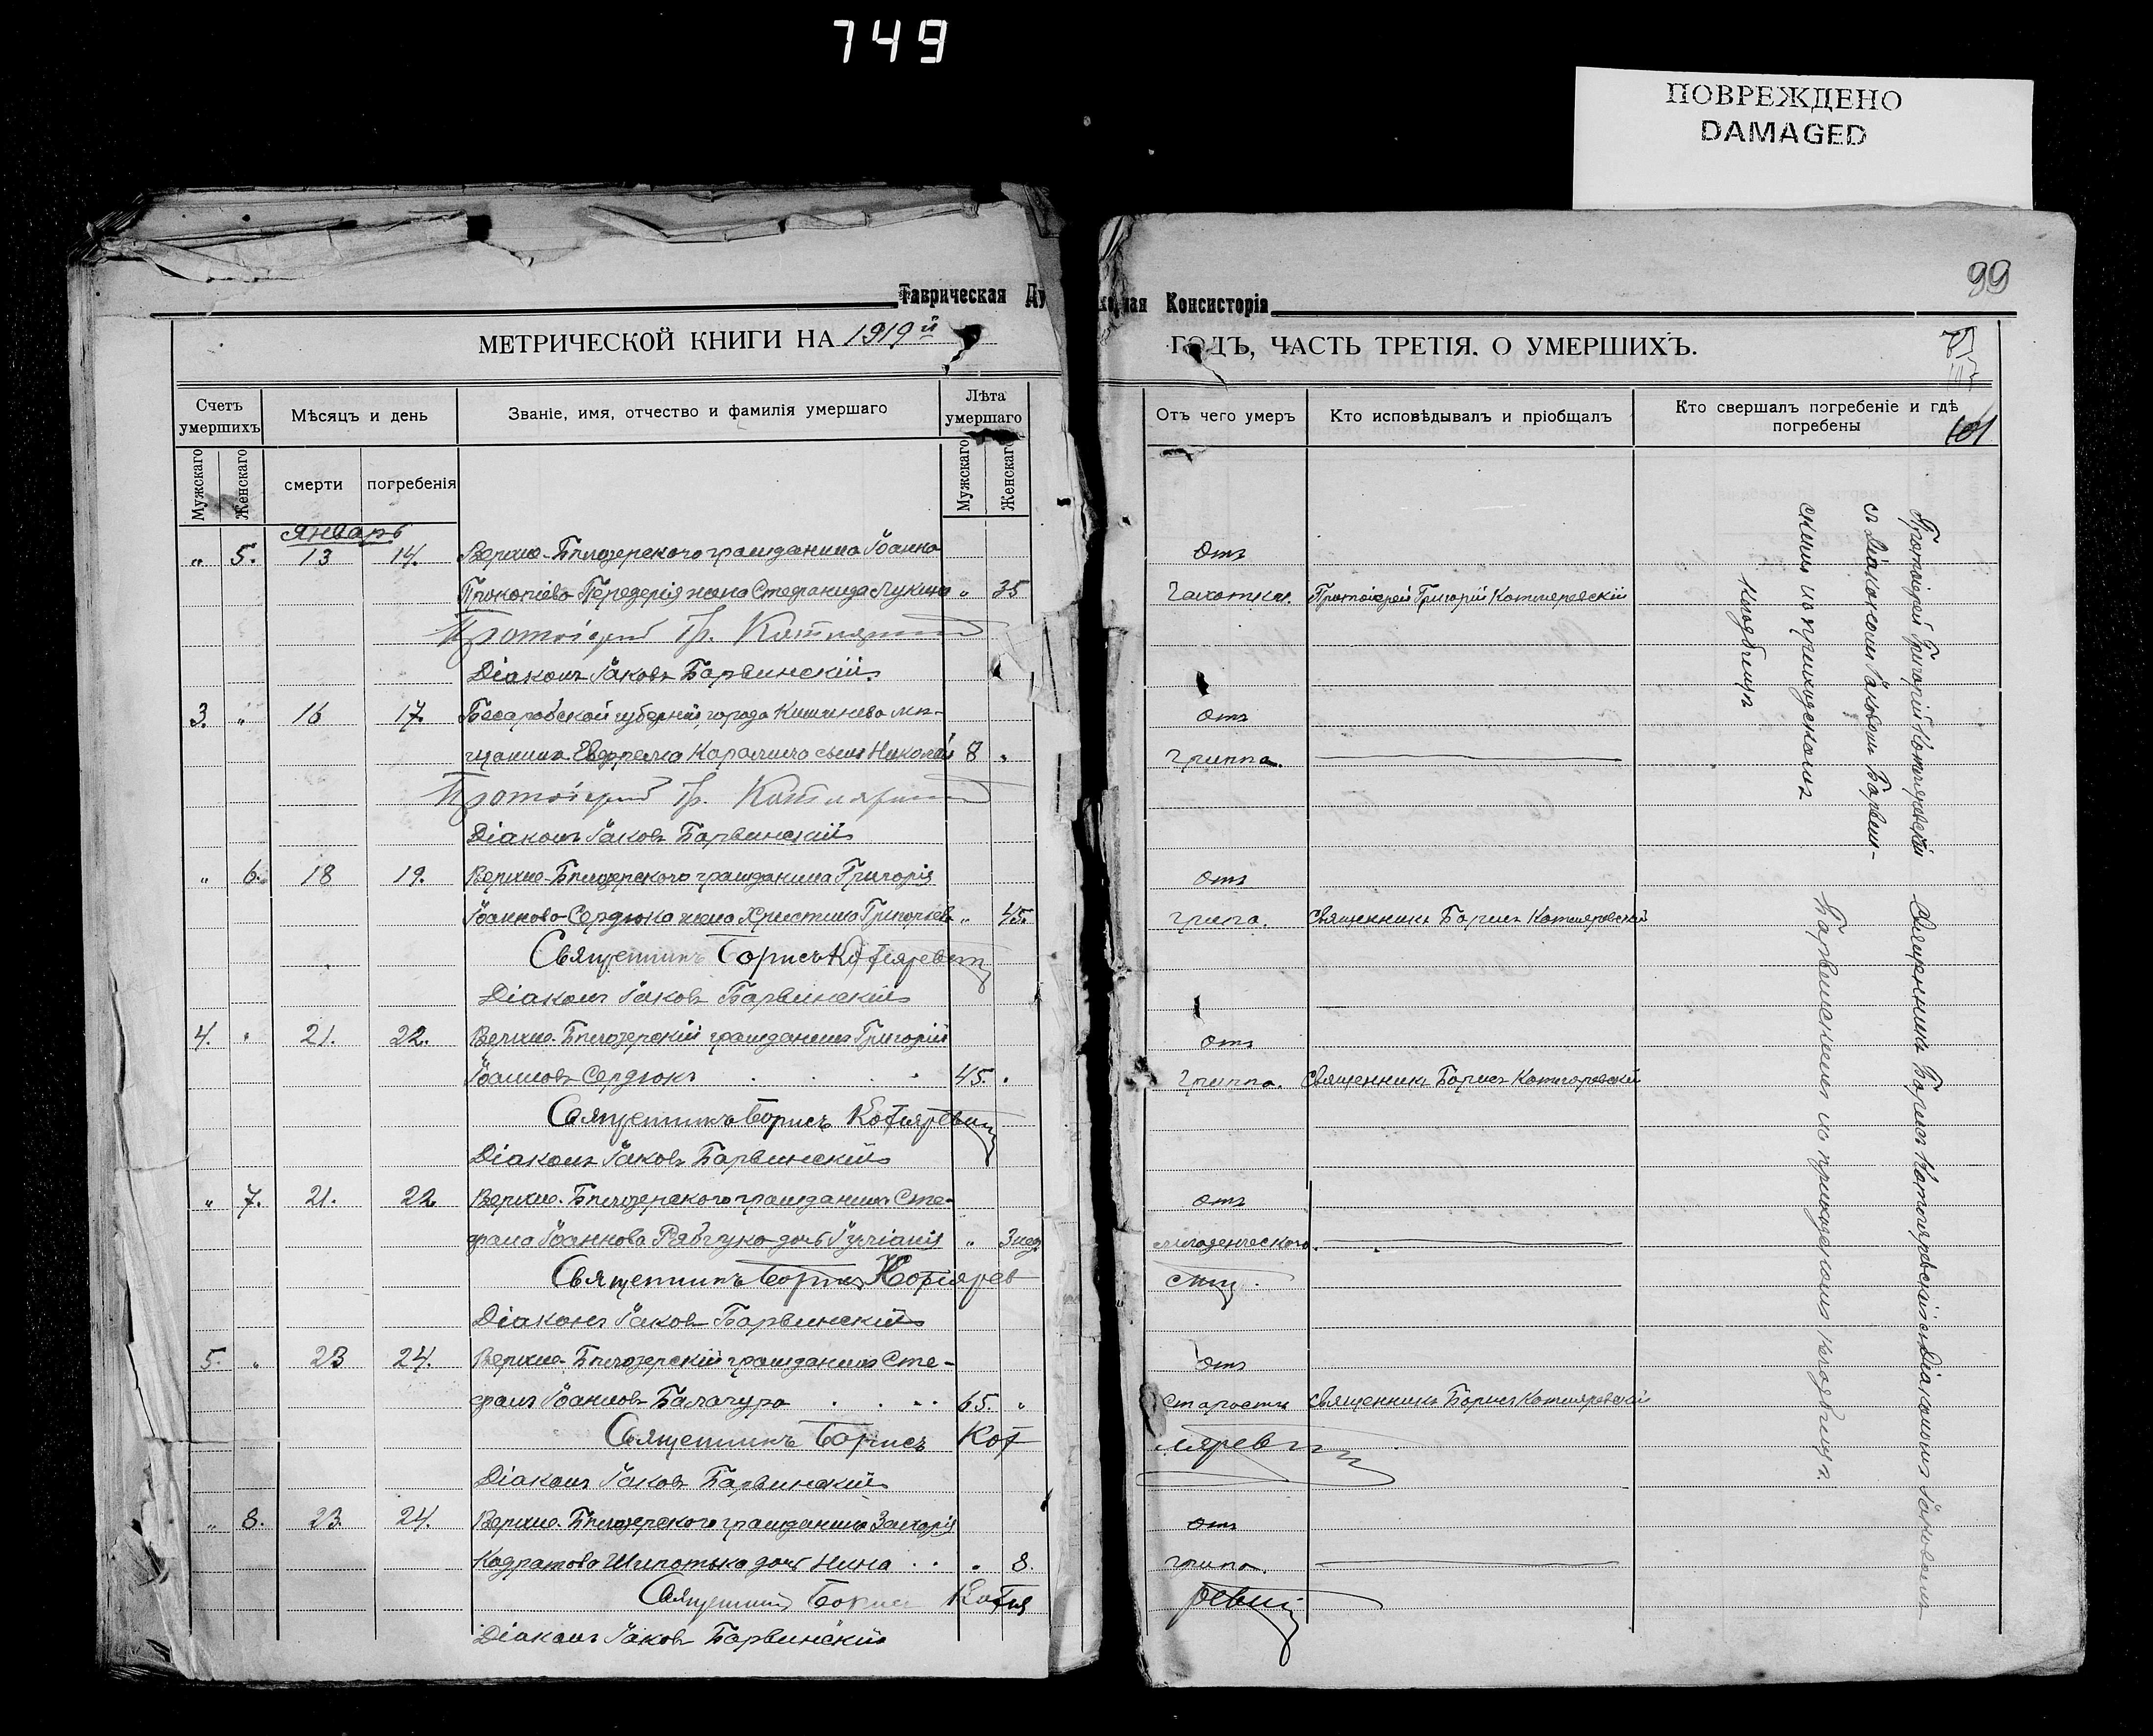 749
ПОВРЕЖДЕНО
DAMAGED
99
Таврическая Ду
ховная Консисторія
МЕТРИЧЕСКОЙ КНИГИ НА 1919й
ГОДЪ, ЧАСТЬ ТРЕТІЯ. О УМЕРШИХЪ.
101
Счетъ умершихъ
Мѣсяцъ и день
Званіе, имя, отчество и фамилія умершаго
Лѣта умершаго
Отъ чего умеръ
Кто исповѣдывалъ и пріобщалъ
Кто свершалъ погребеніе и гдѣ погребены
Мужскаго
Женскаго
смерти
погребенія
Мужскаго
Женскаго
Январь
„ 5. 13 14. Верхне-Бѣлозерскаго гражданина Іоанна Отъ
Прокопіева Передерія жена Стефанида Лукина „ 35 Чахотки. Протоіерей Григорій Котляревскій
Протоіерей Гр. Котляревскій
Діаконъ Іаковъ Барвинскій
3. „ 16 17. Бесарабской губерніи, города Кишинева мѣ- Отъ
щанина Евфрема сынъ Николай 8 „ гриппа.
Протоіерей Гр. Котляревскій
Діаконъ Іаковъ Барвинскій
„ 6. 18 19. Верхне-Бѣлозерскаго гражданина Григорія Отъ
Іоаннова Сердюка жена Христина Григорьева „ 45. грипа. Священникъ Борисъ Котляревскій
Священникъ Борисъ Котляревскій
Діаконъ Іаковъ Барвинскій
4. „ 21. 22. Верхне-Бѣлозерскій гражданинъ Григорій Отъ
Іоанновъ Сердюкъ 45. „ Гриппа. Священникъ Борисъ Котляревскій
Священникъ Борисъ Котляревскій
Діаконъ Іаковъ Барвинскій
„ 7. 21. 22 Верхне-Бѣлозерскаго гражданина Сте- Отъ
фана Іоаннова Рябчука дочь Іуліанія „ 3 нед. младенческаго.
Священникъ Борисъ Котляревскій
Діаконъ Іаковъ Барвинскій
5. „ 23 24. Верхне-Бѣлозерскій гражданинъ Сте- Отъ
фанъ Іоанновъ Балачура 65. „ Старости Священникъ Борисъ Котляревскій
Священникъ Борисъ Котляревскій
Діаконъ Іаковъ Барвинскій
„ 8. 23. 24. Верхне-Бѣлозерскаго гражданина Захарія Отъ
Кодратова дочь Нина „ 8. грипа.
Священникъ Борисъ Котляревскій
Діаконъ Іаковъ Барвинскій
Протоіерей Григорій Котляревскій
съ Діакономъ Іаковомъ Барвин-
скимъ на приходскомъ
кладбищѣ
Священникъ Борисъ Котляревскій съ Діакономъ Іаковомъ
Барвинскимъ на приходскомъ кладбищѣ.